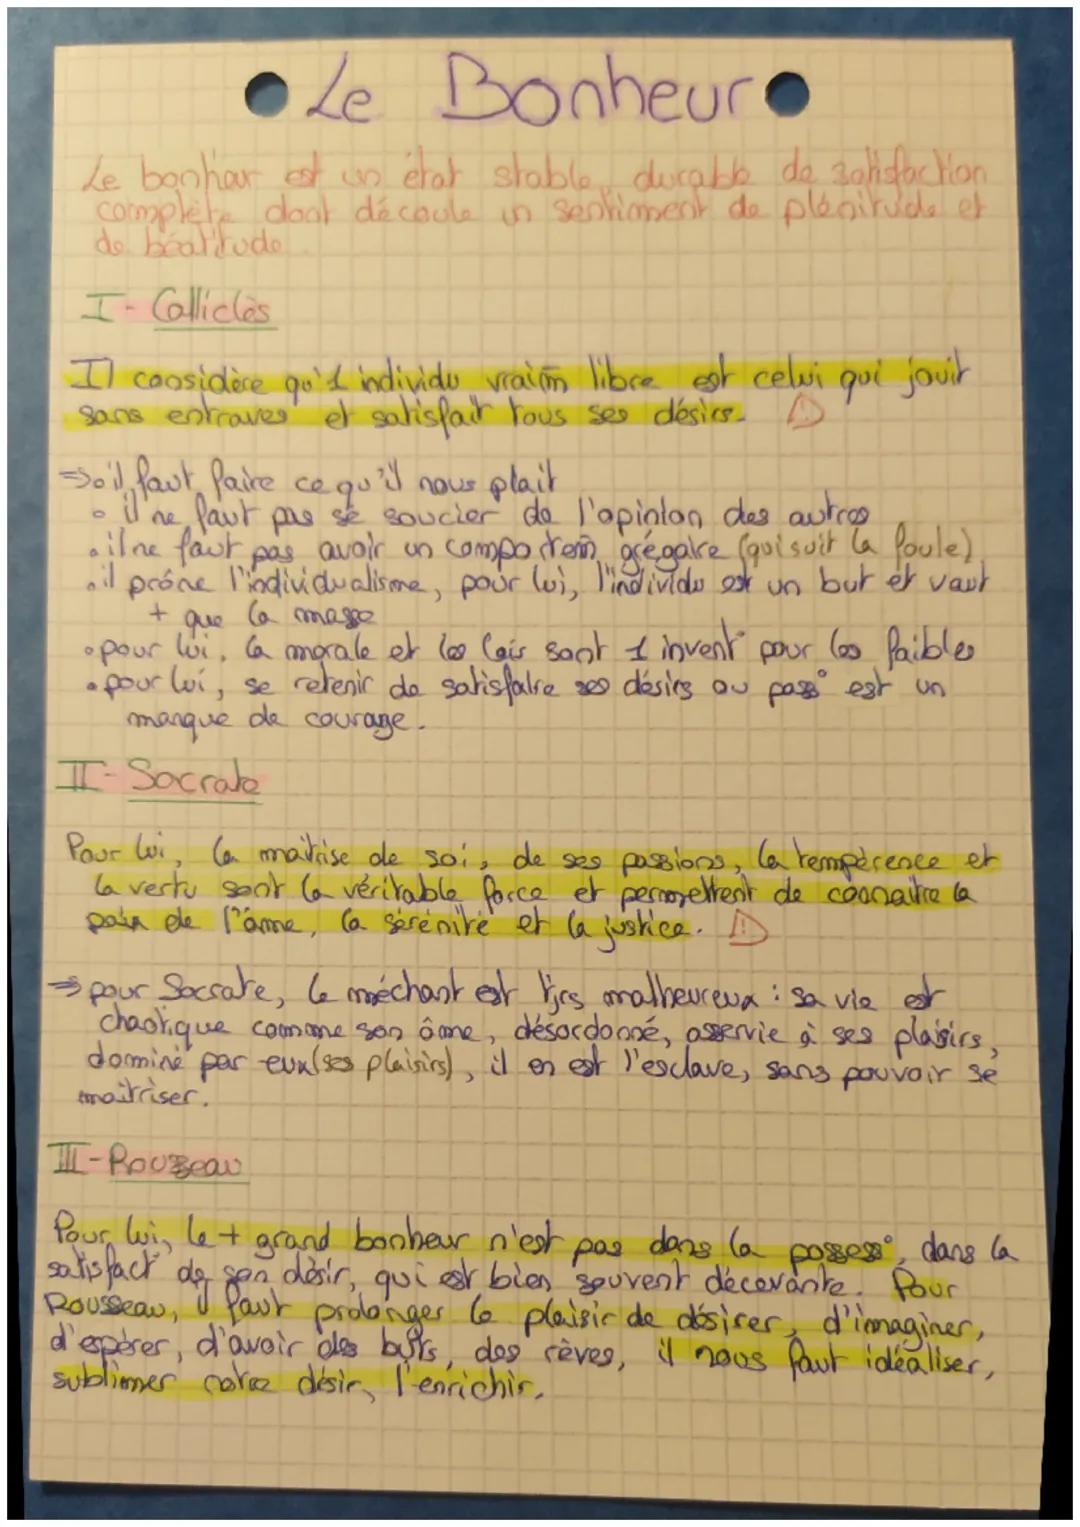 Le Bonheur
Le bonheur est un état stable, durable de satisfaction
complète dont découle un sentiment de plénitude et
de béatitude.
I - Calliclès
Il considère qu'1 individu vraim libre est celui qui jouit
sans entraves et satisfait tous ses désirs. ⚠
=> • il faut faire ce qu'il nous plait
• il ne faut pas se soucier de l'opinion des autres
• il ne faut pas avoir un comportem grégaire (qui suit la foule)
• il prône l'individualisme, pour lui, l'individu est un but et vaut
+ que la masse
• pour lui, la morale et les lois sont 1 invent° pour les faibles
• pour lui, se retenir de satisfaire ses désirs ou pass° est un
manque de courage.
II - Socrate
Pour lui, la maîtrise de soi, de ses passions, la tempérence et
la vertu sont la véritable force et permettent de connaître la
paix de l'âme, la sérénité et la justice. ⚠
=> pour Socrate, le méchant est tjrs malheureux : sa vie est
chaotique comme son âme, désordonné, asservie à ses plaisirs,
dominé par eux (ses plaisirs), il en est l'esclave, sans pouvoir se
maîtriser.
III - Rousseau
Pour lui, le + grand bonheur n'est pas dans la possess°, dans la
satisfact° de son désir, qui est bien souvent décevante. Pour
Rousseau, il faut prolonger le plaisir de désirer, d'imaginer,
d'espérer, d'avoir des buts, des rêves, il nous faut idéaliser,
sublimer notre désir, l'enrichir.